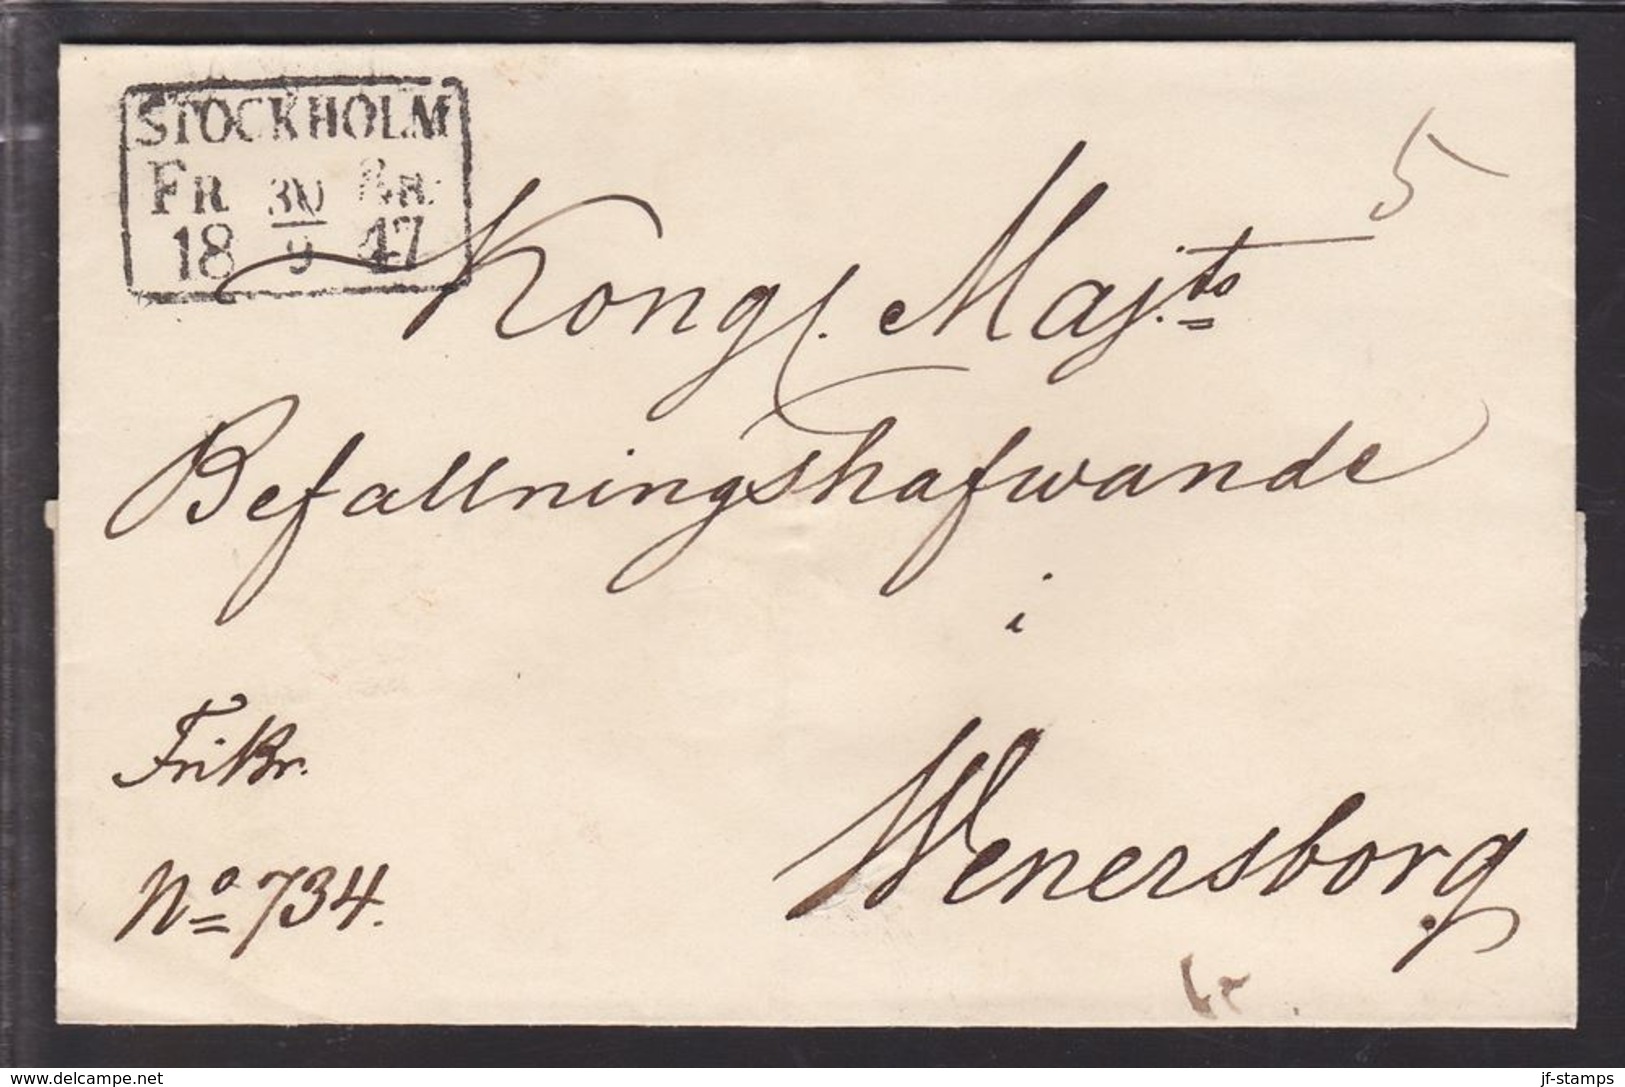 STOCKHOLM
FR 30 BR:
18 9 47
5
Kongl. Maj:ts
Befallningshafwande
i
Fri Br.
Wenersborg.
No 734.
delcampe.net
jf-stamps